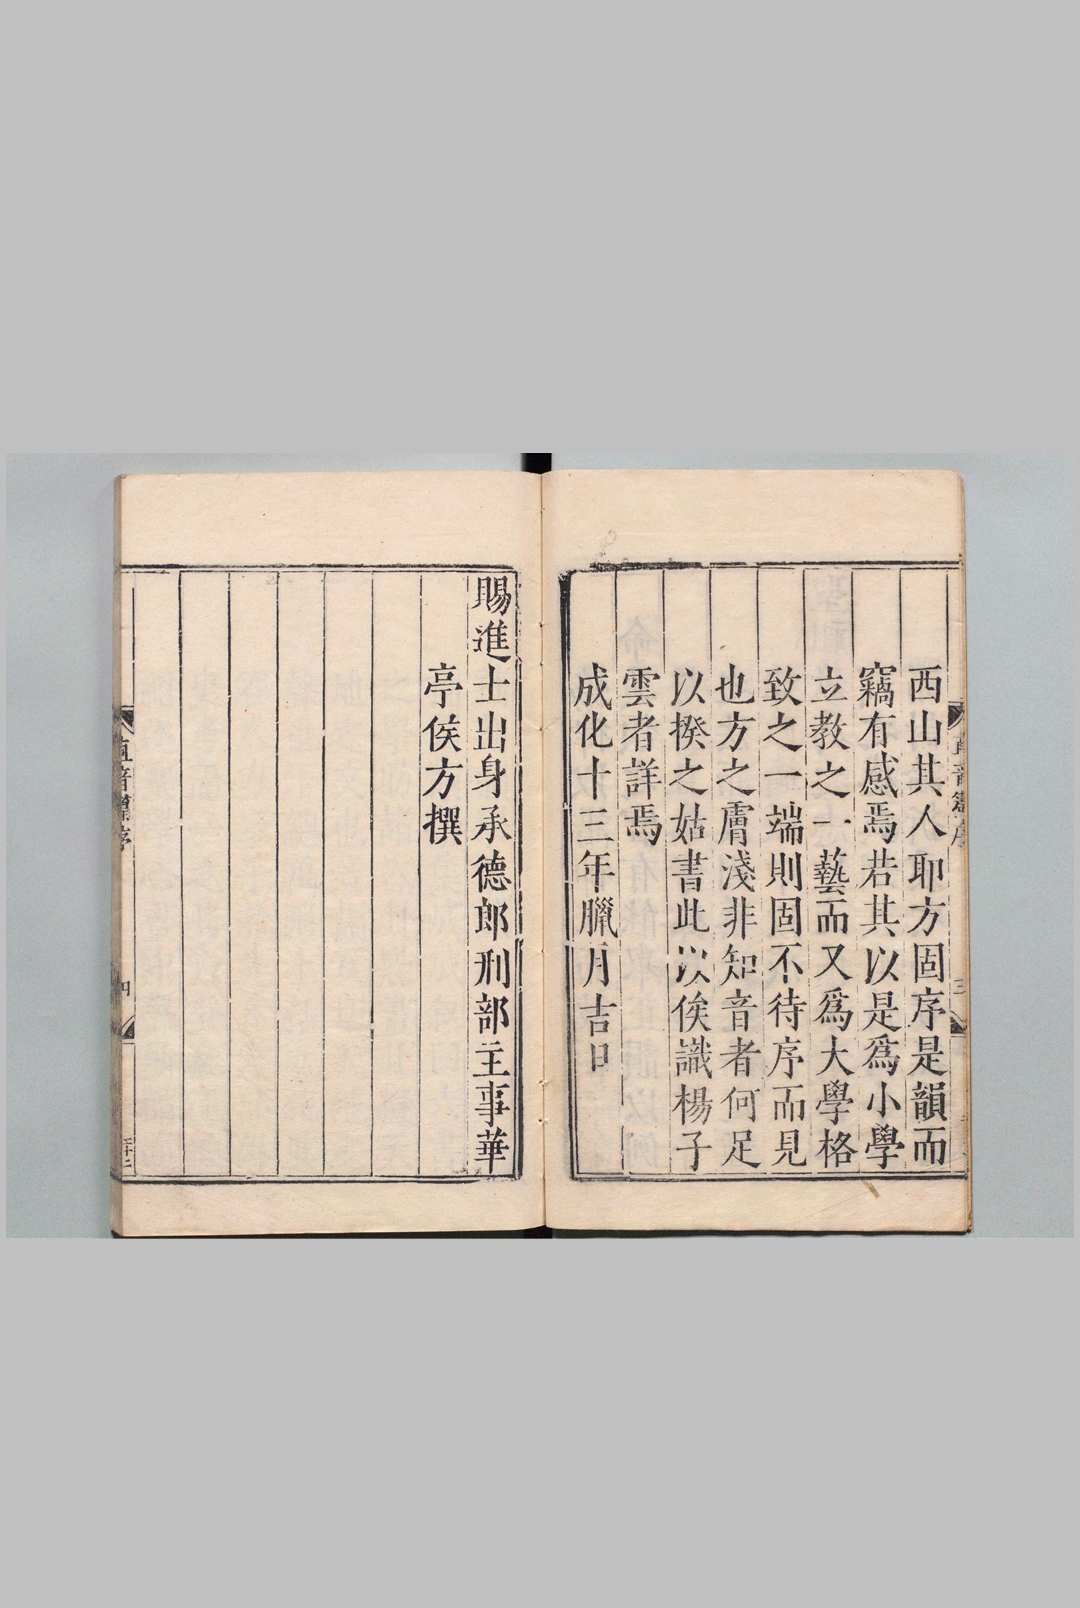 西山其人耶方固序是韻而
竊有感焉若其以是爲小學
立教之一藝而又爲大學格
致之一端則固不待序而見
也方之膚淺非知音者何足
以揆之姑書此以俟識楊子
雲者詳焉
成化十三年臘月吉日
賜進士出身承德郎刑部主事華
亭侯方撰
直音篇序
四